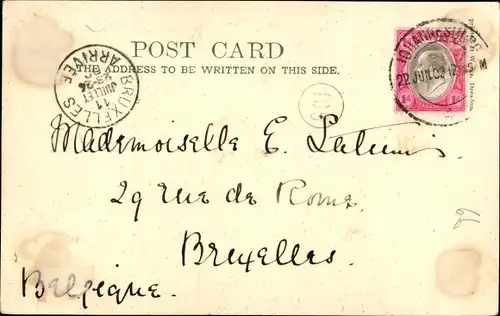 POST CARD
THE ADDRESS TO BE WRITTEN ON THIS SIDE.
BRUXELLES
ARRIVEE
11
JUILLET
JOHANNESBURG
22 JUN 03
1d 1d
Mademoiselle E.
29 Rue de Rome.
Bruxelles.
Belgique.